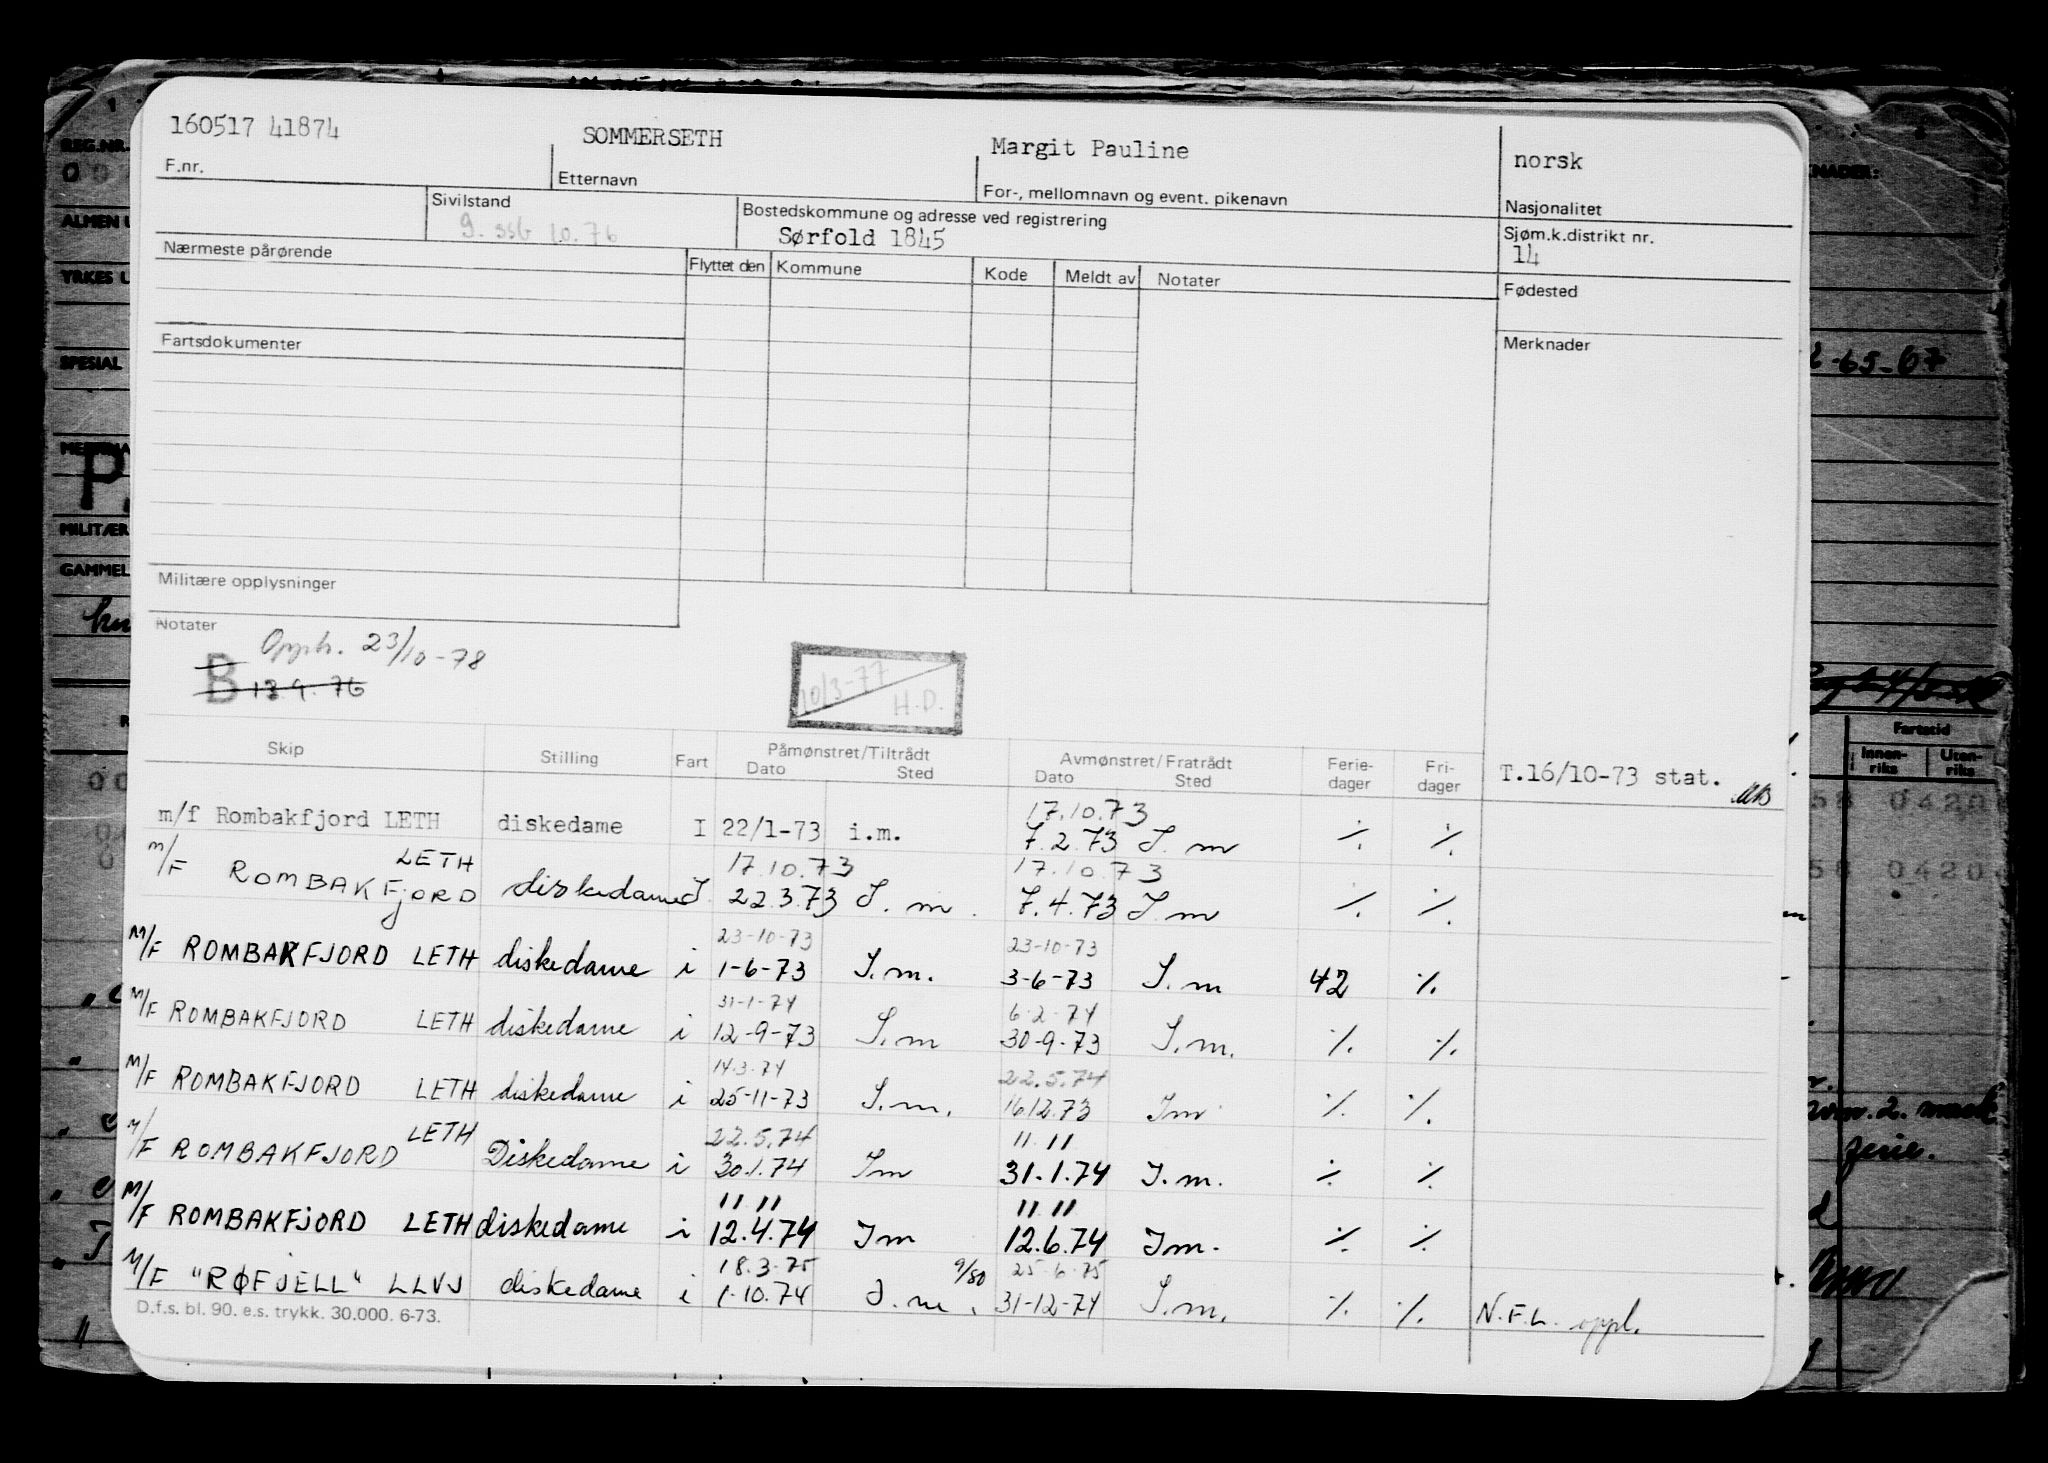 160517 41874 SOMMERSETH Margit Pauline norsk
F.nr. Etternavn For-, mellomnavn og event. pikenavn Nasjonalitet
Sivilstand Bostedskommune og adresse ved registrering Sjøm.k.distrikt nr.
g. ssb 10.76 Sørfold 1845 14
Nærmeste pårørende Flyttet den Kommune Kode Meldt av Notater Fødested
Fartsdokumenter Merknader
Militære opplysninger
Notater
Opph. 23/10-78
B 13.9.76
10/3-77 H.D.
Skip Stilling Fart Påmønstret/Tiltrådt Avmønstret/Fratrådt Ferie- Fri-
Dato Sted Dato Sted dager dager T.16/10-73 stat.
17.10.73
m/f Rombakfjord LETH diskedame I 22/1-73 i.m. 7.2.73 I.m ·/. ·/.
LETH 17.10.73 17.10.73
M/F ROMBAKFjORD diskedame I. 22.3.73 I.m. 7.4.73 I m ·/. ·/.
23-10-73 23-10-73
M/F ROMBAKFJORD LETH diskedame i 1-6-73 I.m. 3-6-73 I.m 42 ·/.
31-1-74 6-2-74
M/F ROMBAKFJORD LETH diskedame i 12-9-73 I.m 30-9-73 I.m. ·/. ·/.
14-3-74 22.5.74
M/F ROMBAKFJORD LETH diskedame i 25-11-73 I.m. 1612.73 Im ·/. ·/.
LETH 22.5.74 11 11
M/F ROMBAKFJORD Diskedame i 30.1.74 Im 31.1.74 I.m. ·/. ·/.
11 11 11 11
M/F ROMBAKFJORD LETH diskedame i 12.4.74 Im 12.6.74 Im. ·/. ·/.
18.3.75 9/80 25-6-75
M/F "RØFJELL" LLVJ diskedame i 1-10.74 I.m. 31-12-74 I.m. ·/. ·/. N.F.L. oppl.
D.f.s. bl. 90. e.s. trykk. 30.000. 6-73.
REG.NR.
ALMEN
YRKES
SPESIAL
MILITÆR
GAMMEL
KNADER:
-65-67
Fartstid
Innen-riks Uten-riks
58 0420
58 0420
2. mask
ferie.